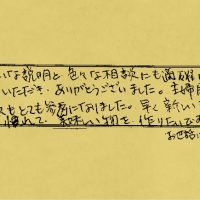 いな説明と色々な相談にも適確に
いただき、ありがとうございました。主婦目
スもとても参考になりました。早く新しい
慣れて、美味しい物を、作りたいです
お世話に